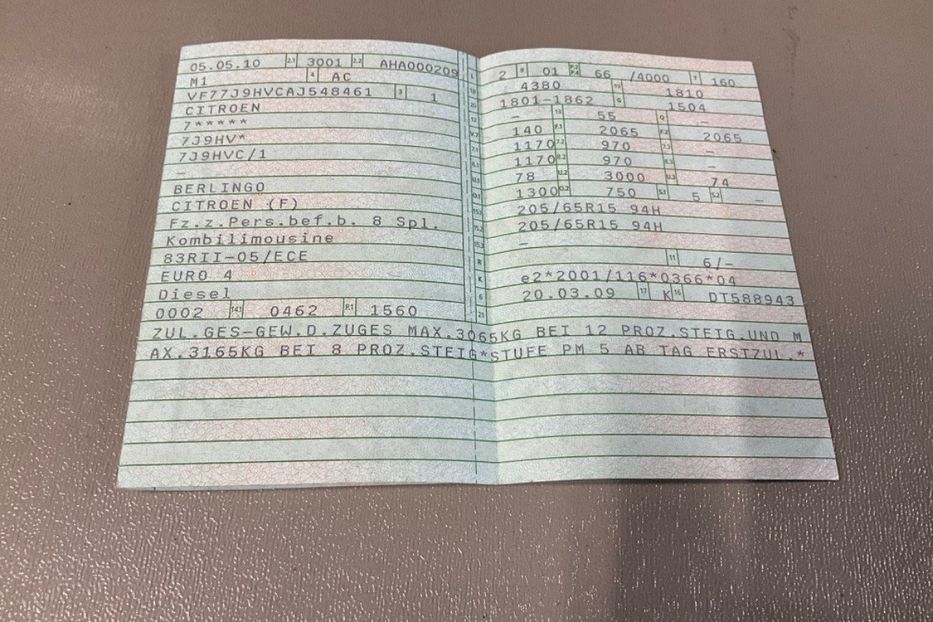 05.05.10 2.1 3001 2.2 AHA000209
M1 4 AC
VF77J9HVCAJ548461 3 1
CITROEN
7*****
7J9HV*
7J9HVC/1
–
BERLINGO
CITROEN (F)
Fz.z.Pers.bef.b. 8 Spl.
Kombilimousine
83RII-05/ECE
EURO 4
Diesel
0002 14.1 0462 P.1 1560
L 2 9 01 P.2 P.4 66 /4000 T 160
18 4380 19 1810
20 1801-1862 G 1504
12 – 13 55 Q –
V.7 140 F.1 2065 F.2 2065
7.1 1170 7.2 970 7.3 –
8.1 1170 8.2 970 8.3 –
U.1 78 U.2 3000 U.3 74
O.1 1300 O.2 750 S.1 5 S.2 –
15.1 205/65R15 94H
15.2 205/65R15 94H
15.3 –
R 11 6/–
K e2*2001/116*0366*04
6 20.03.09 17 K 16 DT588943
21
ZUL.GES-GEW.D.ZUGES MAX.3065KG BEI 12 PROZ.STEIG.UND M
AX.3165KG BEI 8 PROZ.STEIG*STUFE PM 5 AB TAG ERSTZUL.*